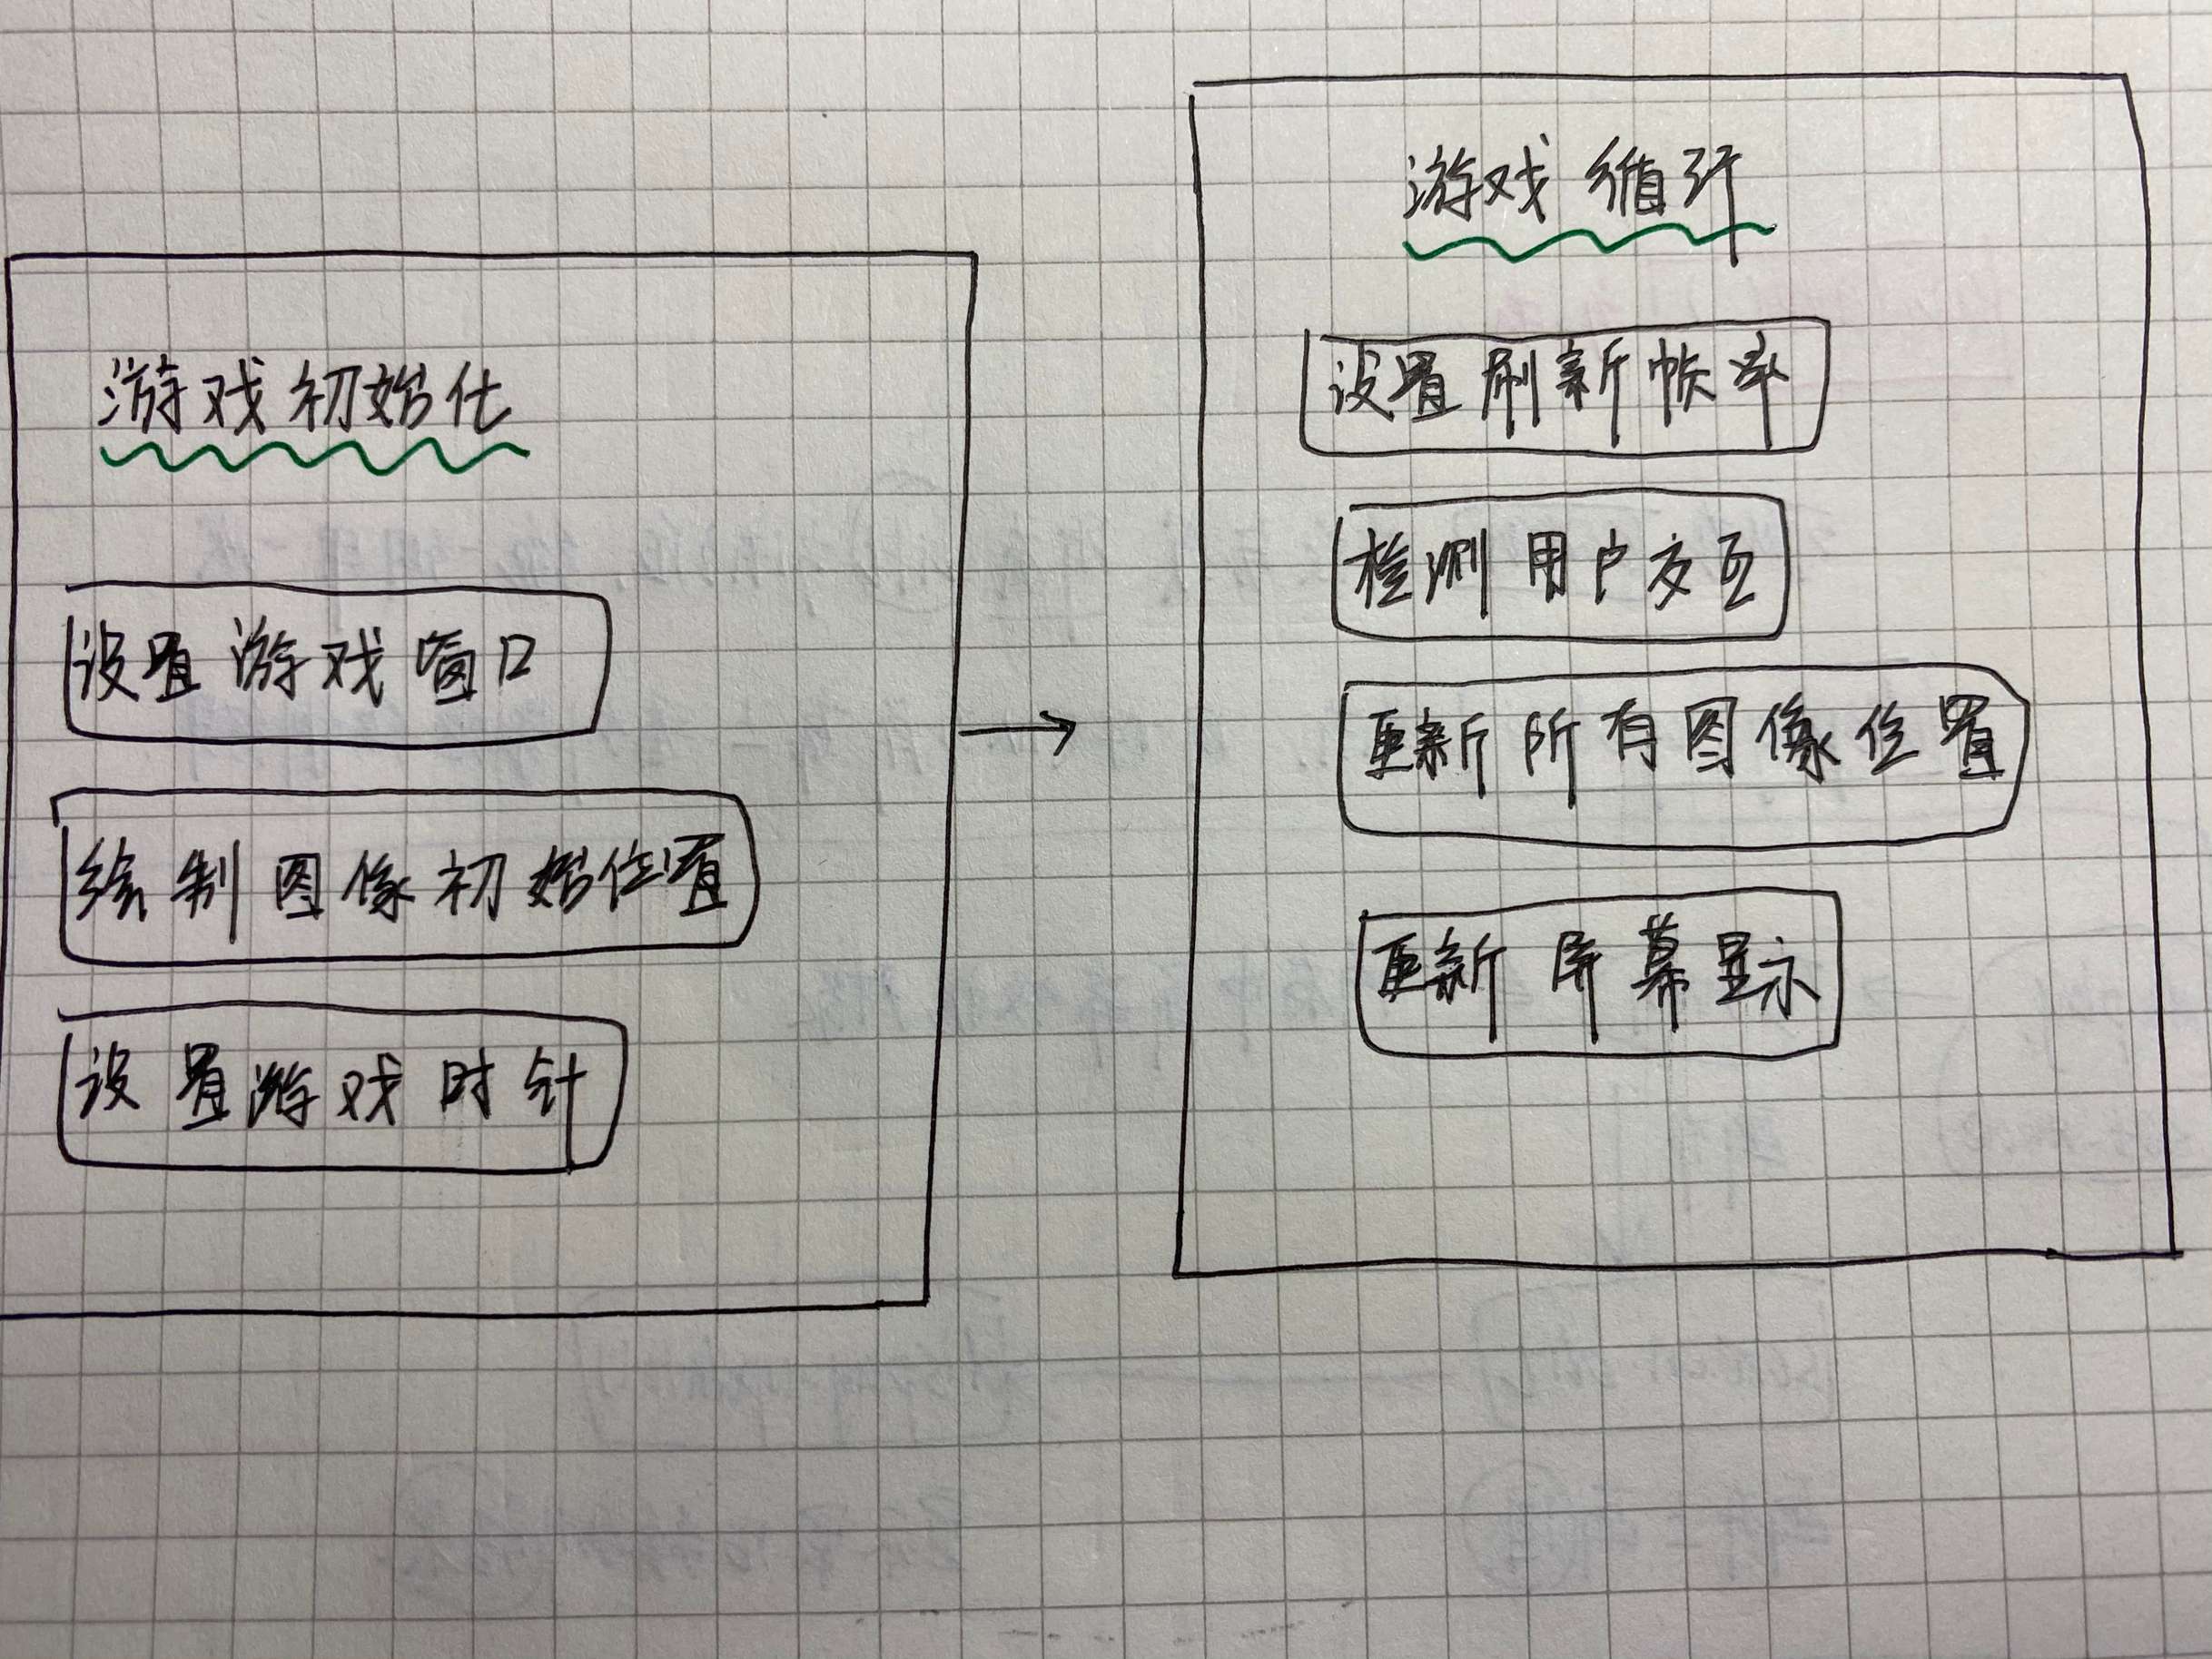 游戏初始化
设置游戏窗口
绘制图像初始位置
设置游戏时针
游戏循环
设置刷新帧率
检测用户交互
更新所有图像位置
更新屏幕显示